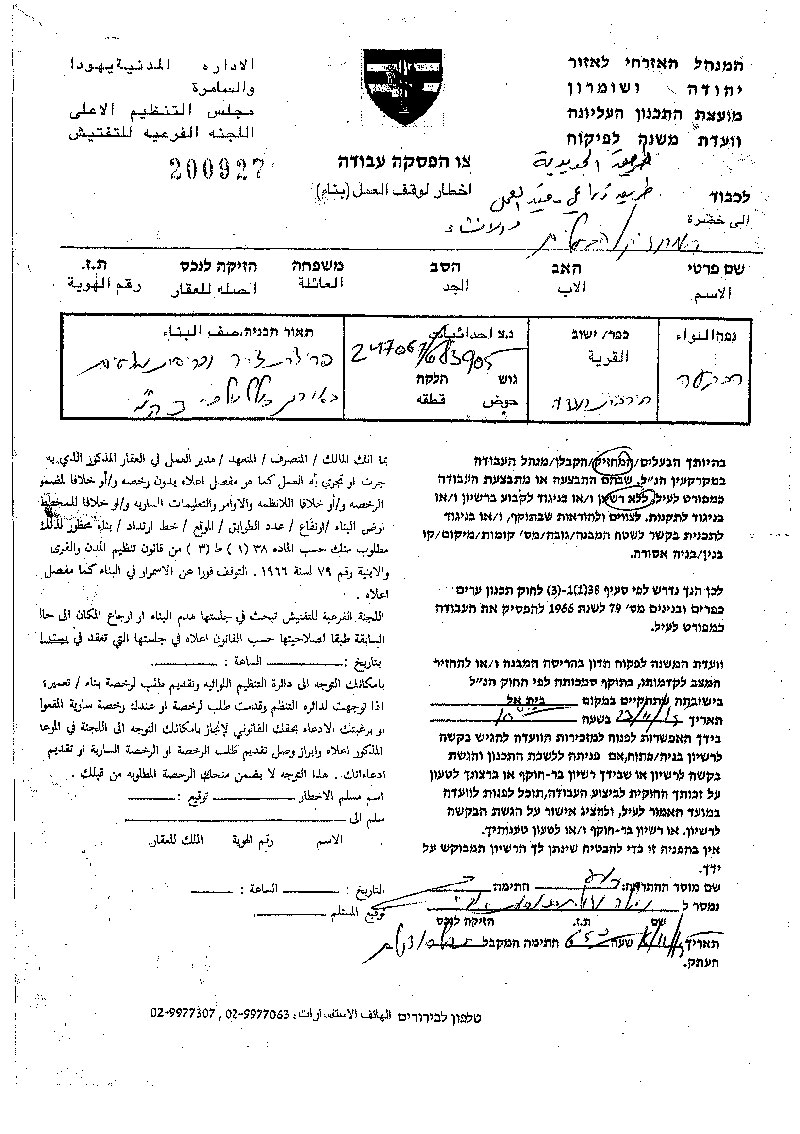 המנהל האזרחי לאזור
יהודה ושומרון
מועצת התכנון העליונה
וועדת משנה לפיקוח
الاداره المدنية يهودا
والسامرة
مجلس التنظيم الاعلى
اللجنه الفرعيه للتفتيش
200927
צו הפסקה עבודה
اخطار لوقف العمل (بناء)
לכבוד
الى حضرة
طريق الحديدية
طريق زراعي
שם פרטי האב הסב משפחה הזיקה לנכס ת.ז.
الاسم الاب الجد العائلة اصله للعقار رقم الهوية
נפה النواء
כפר/ ישוב
القرية
נ.צ احداثيات
247067/683905
גוש חלקה
حوض قطقه
תאור הבניה, صف البناء
בהיותך הבעלים/המחזיק/הקבלן/מנהל העבודה
במקרקעין הנ"ל, שבהם התבצעה או מתבצעת העבודה
כמפורט לעיל, ללא רשיון ו/או בניגוד לקבוע ברשיון ו/או
בניגוד לתקנות, לצווים ולהוראות שבתוקף, ו/או בניגוד
לתכנית בקשר לשטח המבנה/גובה/מס' קומות/מיקום/קו
בנין/בניה אסורה.
לכן הנך נדרש לפי סעיף 38(1)-(3) לחוק תכנון ערים
כפרים ובנינים מס' 79 לשנת 1966 להפסיק את העבודה
כמפורט לעיל.
וועדת המשנה לפקוח תדון בהריסת המבנה ו/או להחזיר
המצב לקדמותו, בתוקף סמכותה לפי החוק הנ"ל
בישיבתה שתתקיים במקום בית אל
התאריך בשעה
בידך האפשרות לפנות למזכירות הוועדה להגיש בקשה
לרשיון בניה/פתוח, אם פניתה ללשכת התכנון והגשת
בקשה לרשיון או שבידך רשיון בר-חוקף או ברצונך לטעון
על זכותך החוקית לביצוע העבודה, תוכל לפנות לוועדה
במועד האמור לעיל, ולהציג אישור על הגשת הבקשה
לרשיון, או רשיון בר-חוקף ו/או לטעון טענותיך.
אין בהפניה זו כדי להבטיח שינתן לך הרשיון המבוקש על
ידך.
שם מוסר ההתראה: חתימה
נמסר ל
שם ת.ז. הזיקה לנכס
תאריך שעה חתימה המקבל
העתק.
بما انك المالك / المتصرف / المتعهد / مدير العمل في العقار المذكور اللذي به
جرت او تجري به العمل كما هو مفصل اعلاه بدون رخصه و/أو خلافا لمضمو
الرخصه و/أو خلافا للانظمه والاوامر والتعليمات الساريه و/أو خلافا للمخطط
نرض البناء /وارتفاع / عدد الطوابق / الموقع / خط ارتداد / بناء محظور لذلك
مطلوب منك حسب الماده ٣٨ (١) ط (٣) من قانون تنظيم المدن والقرى
والابنية رقم ٧٩ لسنة ١٩٦٦. التوقف فورا عن الاسمرار في البناء كما مفصل
اعلاه .
اللجنة الفرعية للتفتيش تبحث في جلستها هدم البناء او ارجاع المكان الى حالا
السابقة طبقا لصلاحيتها حسب القانون اعلاه في جلستها التي تعقد في
بتاريخ : الساعة :
بامكانك التوجه الى دائرة التنظيم اللوائيه وتقديم طلب لرخصة بناء / تعميرة
اذا توجهت لدائره التنظيم وقدمت طلب لرخصة او عندك رخصة سارية المفعوا
او برغبتك الادعاء بحقك القانوني لإنجاز بامكانك التوجه الى اللجنة في الموعا
المذكور اعلاه وابراز وصل تقديم طلب الرخصة او الرخصة السارية او تقديم
ادعاءاتك . هذا التوجه لا يضمن منحك الرخصة المطلوبه من قبلك .
اسم مسلم الاخطار توقيع :
سلم الى
الاسم رقم الهوية الملك للعقار
التاريخ : الساعة :
توقيع المستلم
טלפון לבירורים الهاتف الاستفسارات : 02-9977063 , 02-9977307